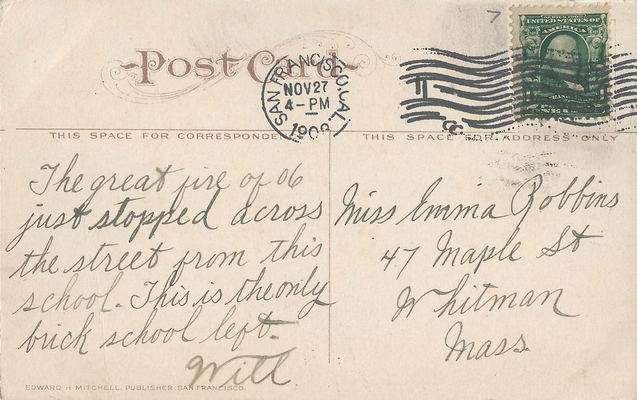 7
SERIES 1902
UNITED STATES OF
AMERICA
Post Card
SAN FRANCISCO, CAL.
NOV 27
4-PM
THIS SPACE FOR CORRESPONDENCE
THIS SPACE FOR ADDRESS ONLY
The great fire of 06
just stopped across
the street from this
school. This is the only
brick school left.
Will
Miss Emma Robbins
47 Maple St
Whitman
Mass.
EDWARD H. MITCHELL, PUBLISHER, SAN FRANCISCO.